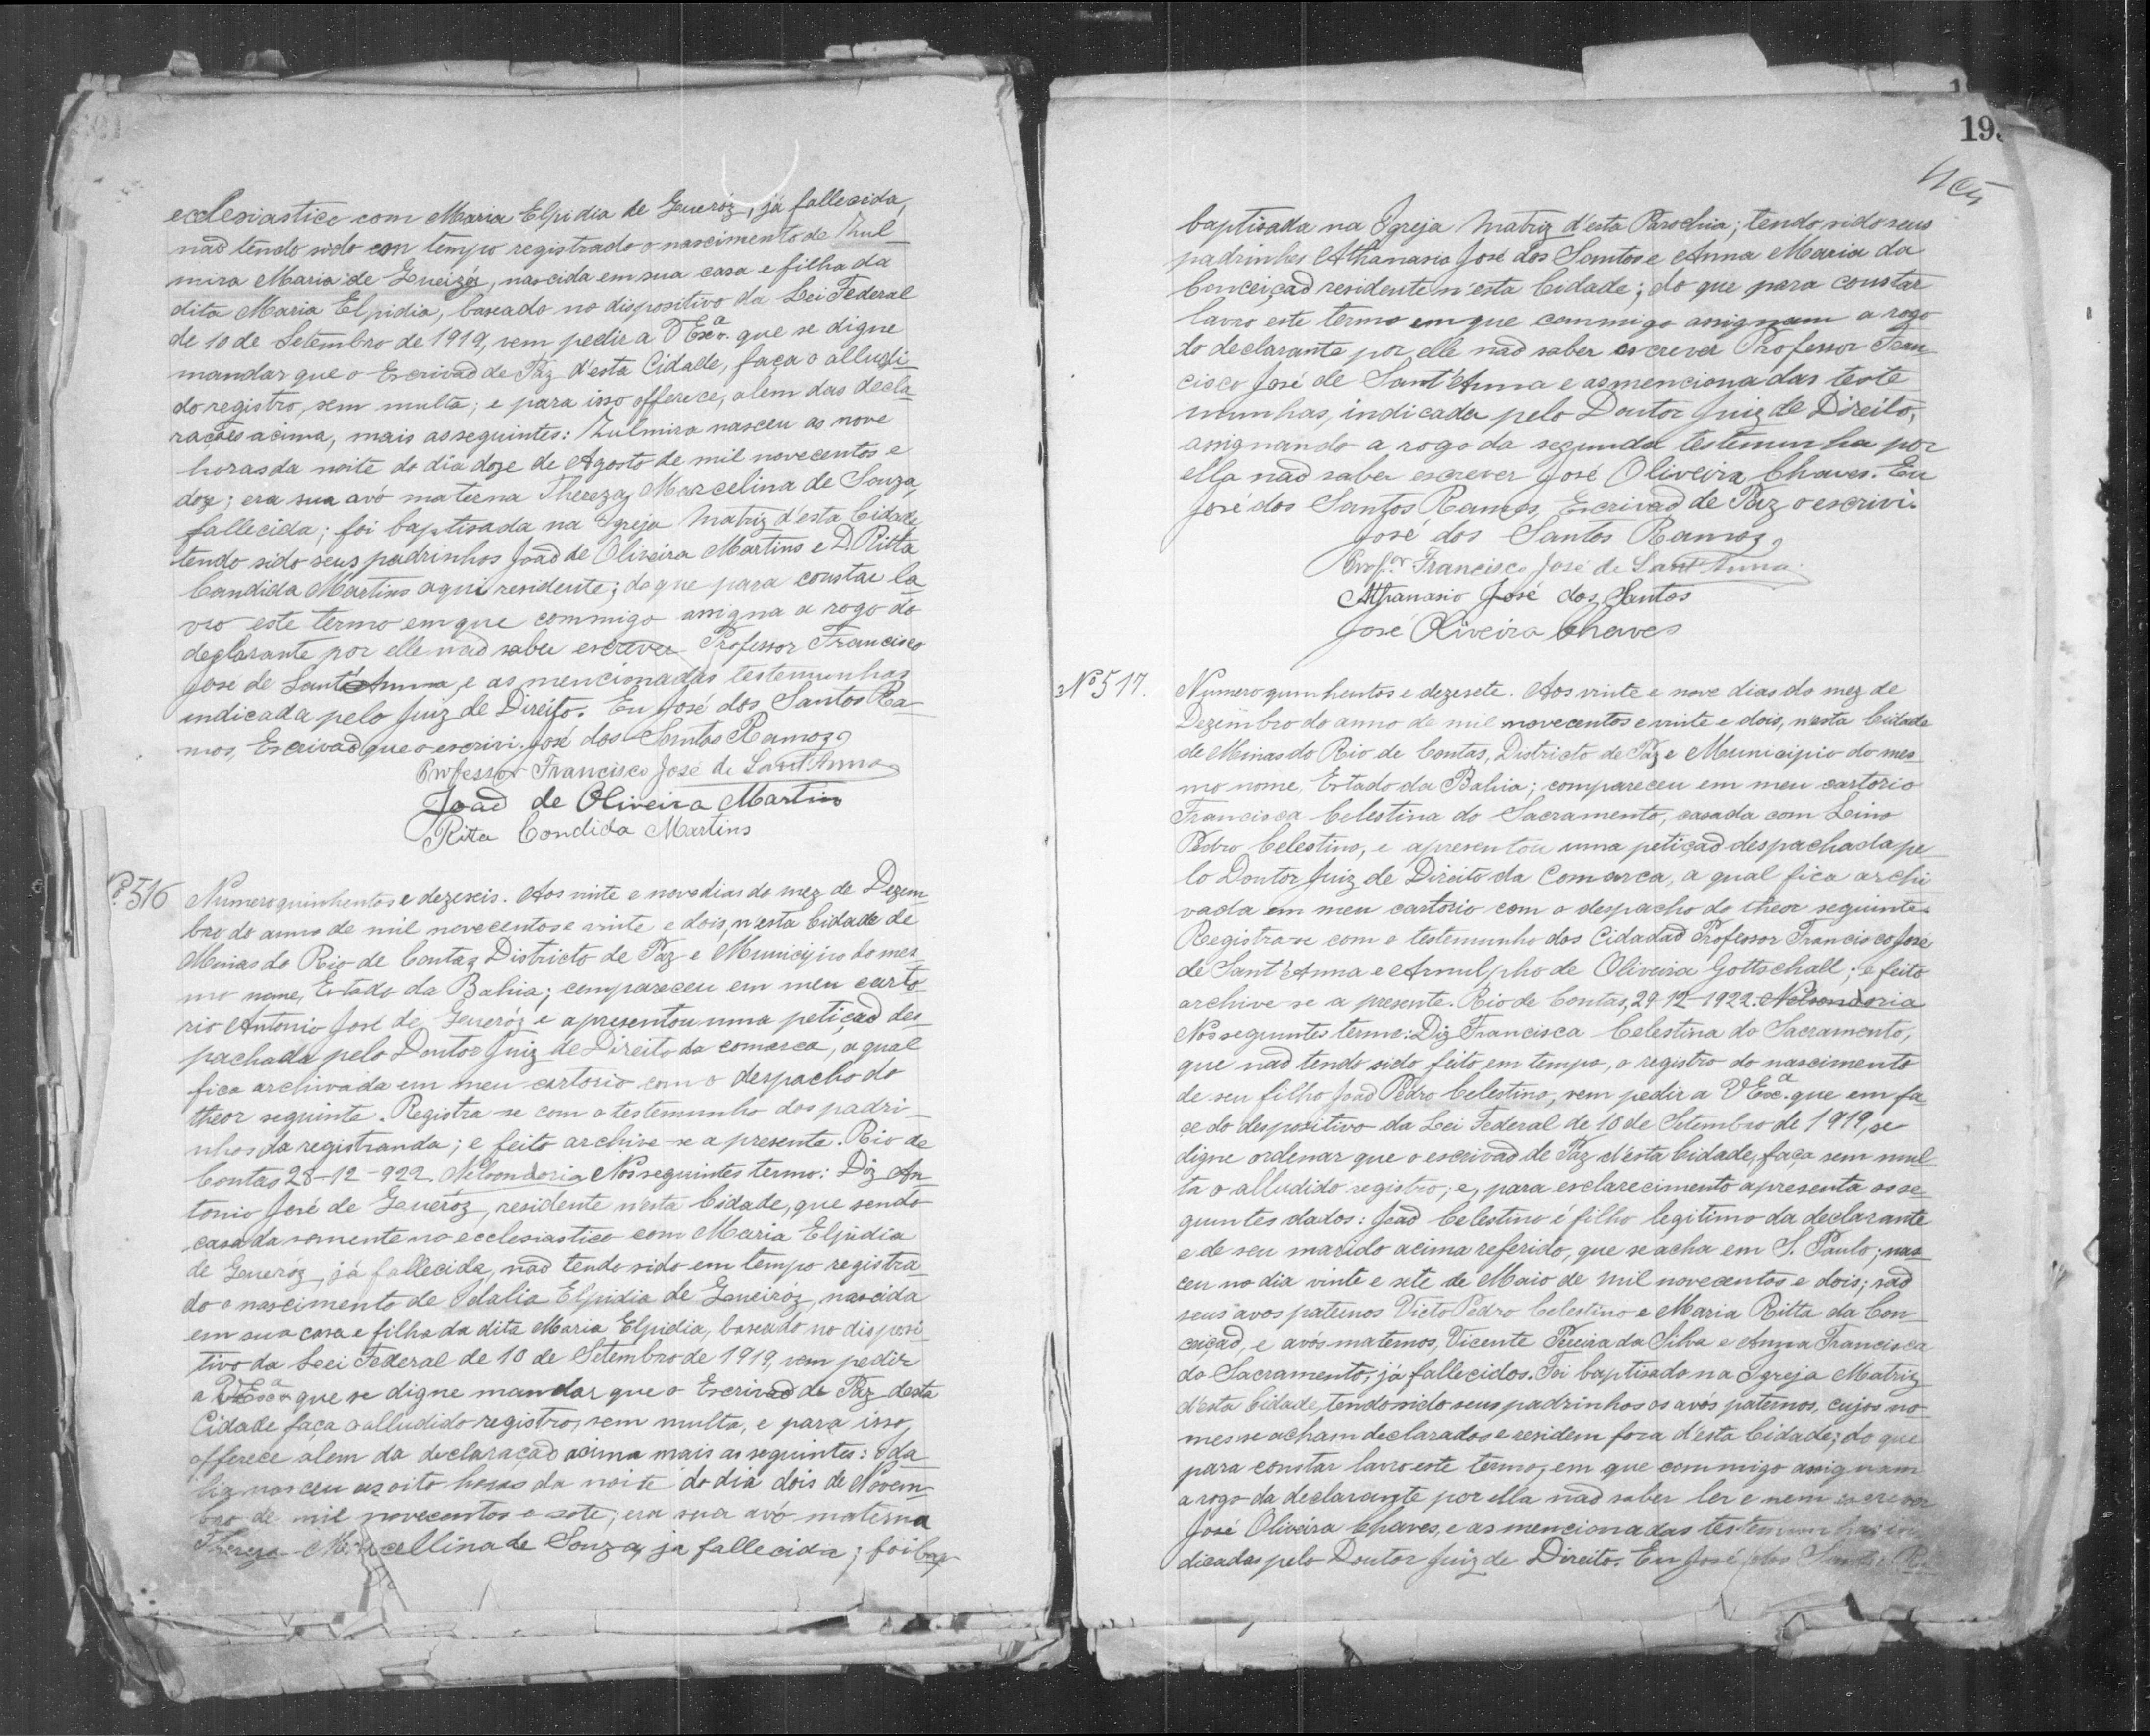 ecclesiastico com Maria Elpidia de Queróz, já fallecida,
não tendo sido em tempo registrado o nascimento de Zul-
mira Maria de Queiróz, nascida em sua casa e filha da
dita Maria Elpidia, baseado no dispositivo da Lei Federal
de 10 de Setembro de 1919, vem pedir a V Exª. que se digne
mandar que o Escrivão de Paz d'esta Cidade, faça o alludi-
do registro, sem multa; e para isso offerece, alem das decla-
rações acima, mais as seguintes: Zulmira nasceu as nove
horas da noite do dia doze de Agosto de mil novecentos e
doze; era sua avó materna Thereza Marcelina de Souza,
fallecida; foi baptisada na Igreja Matriz d'esta Cidade,
tendo sido seus padrinhos João de Oliveira Martins e D. Ritta
Candida Martins aqui residente; do que para constar la-
vro este termo em que commigo assigna a rogo do
declarante por elle não saber escrever Professor Francisco
José de Sant'Anna, e as mencionadas testemunhas
indicada pelo Juiz de Direito. Eu José dos Santos Ra-
mos, Escrivão que o escrivi. José dos Santos Ramos
Professor Francisco José de Sant'Anna
João de Oliveira Martins
Ritta Condida Martins
Nº 516 Numero quinhentos e dezeseis. Aos vinte e nove dias do mez de Dezem-
bro do anno de mil novecentos e vinte e dois, n'esta Cidade de
Minas do Rio de Contas, Districto de Paz e Municipio do mes-
mo nome, Estado da Bahia; compareceu em meu carto-
rio Antonio José de Queróz e apresentou uma petição des-
pachada pelo Doutor Juiz de Direito da comarca, a qual
fica archivada em meu cartorio com o despacho do
theor seguinte. Registra-se com o testemunho dos padri-
nhos da registranda; e feito archive-se a presente. Rio de
Contas 28-12-922. Nelson Doria Nos seguintes termo: Diz An-
tonio José de Queróz, residente n'esta Cidade, que sendo
casada somente no ecclesiastico com Maria Elpidia
de Queróz, já fallecida, não tendo sido em tempo registra-
do o nascimento de Odalia Elpidia de Queiróz, nascida
em sua casa e filha da dita Maria Elpidia, baseado no disposi-
tivo da Lei Federal de 10 de Setembro de 1919, vem pedir
a V Exª que se digne mandar que o Escrivão de Paz desta
Cidade faça o alludido registro, sem multa, e para isso
offerece alem da declaração acima mais as seguintes: Oda-
lia nasceu as oito horas da noite do dia dois de Novem-
bro de mil novecentos e sete; era sua avó materna
Thereza Marcellina de Souza, já fallecida; foi bap-
195
baptisada na Igreja Matriz d'esta Parochia; tendo sido seus
padrinhos Athanasio José dos Santos e Anna Maria da
Conceição residente n'esta Cidade; do que para constar
lavro este termo em que commigo assignam a rogo
do declarante por elle não saber escrever Professor Fran-
cisco José de Sant'Anna e as mencionadas teste-
munhas, indicada pelo Doutor Juiz de Direito,
assignando a rogo da segunda testemunha por
ella não saber escrever José Oliveira Chaves. Eu
José dos Santos Ramos, Escrivão de Paz o escrivi.
José dos Santos Ramos
Prof.or Francisco José de Sant'Anna
Athanasio José dos Santos
José Oliveira Chaves
Nº 517. Numero quinhentos e dezesete. Aos vinte e nove dias do mez de
Dezembro do anno de mil novecentos e vinte e dois, n'esta Cidade
de Minas do Rio de Contas, Districto de Paz e Municipio do mes-
mo nome, Estado da Bahia; compareceu em meu cartorio
Francisca Celestina do Sacramento, casada com Lino
Pedro Celestino, e apresentou uma petição despachada pe-
lo Doutor Juiz de Direito da Comarca, a qual fica archi-
vada em meu cartorio com o despacho do theor seguinte.
Registra-se com o testemunho dos Cidadão Professor Francisco José
de Sant'Anna e Arnulpho de Oliveira Gottschall; e feito
archive-se a presente. Rio de Contas, 29-12-1922. Nelson Doria
Nos seguintes termo: Diz Francisca Celestina do Sacramento,
que não tendo sido feito, em tempo, o registro do nascimento
de seu filho João Pedro Celestino, vem pedir a V Exª. que em fa-
ce do despositivo da Lei Federal de 10 de Setembro de 1919, se
digne ordenar que o escrivão de Paz d'esta Cidade, faça sem mul-
ta o alludido registro; e, para esclarecimento apresenta os se-
guintes dados: João Celestino é filho legitimo da declarante
e de seu marido acima referido, que se acha em S. Paulo; nas-
ceu no dia vinte e sete de Maio de mil novecentos e dois; são
seus avos paternos Victo Pedro Celestino e Maria Ritta da Con-
ceição, e avós maternos, Vicente Pereira da Silva e Anna Francisca
do Sacramento, já fallecidos. Foi baptisado na Igreja Matriz
d'esta Cidade, tendo sido seus padrinhos os avós paternos, cujos no-
mes se acham declarados e residem fora d'esta Cidade; do que
para constar lavro este termo, em que commigo assignam
a rogo da declarante por ella não saber ler e nem escrever
José Oliveira Chaves, e as mencionadas testemunhas in-
dicadas pelo Doutor Juiz de Direito. Eu José dos Santos Ra-